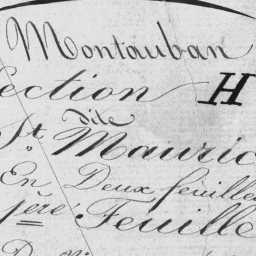 Montauban
ection H
dite
St. Mauric
En Deux feuilles
1ère Feuille